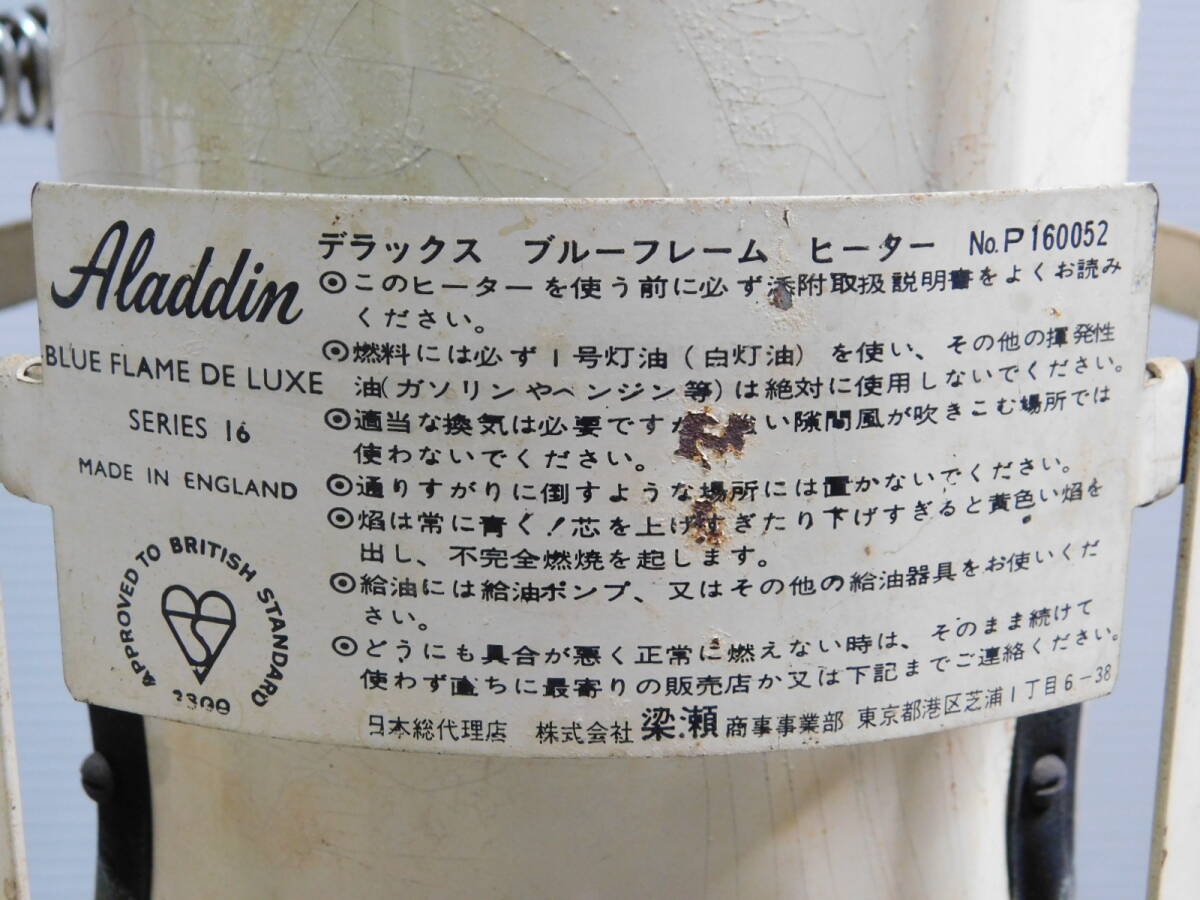 Aladdin
BLUE FLAME DE LUXE
SERIES 16
MADE IN ENGLAND
APPROVED TO BRITISH STANDARD
デラックス ブルーフレーム ヒーター No.P160052
⦿このヒーターを使う前に必ず添附取扱説明書をよくお読み
ください。
⦿燃料には必ず1号灯油(白灯油)を使い、その他の揮発性
油(ガソリンやベンジン等)は絶対に使用しないでください。
⦿適当な換気は必要ですが 強い隙間風が吹きこむ場所では
使わないでください。
⦿通りすがりに倒すような場所には置かないでください。
⦿焰は常に青く!芯を上げすぎたり下げすぎると黄色い焰を
出し、不完全燃焼を起します。
⦿給油には給油ポンプ、又はその他の給油器具をお使いくだ
さい。
⦿どうにも具合が悪く正常に燃えない時は、そのまま続けて
使わず直ちに最寄りの販売店か又は下記までご連絡ください。
日本総代理店 株式会社 梁瀬 商事事業部 東京都港区芝浦1丁目6-38